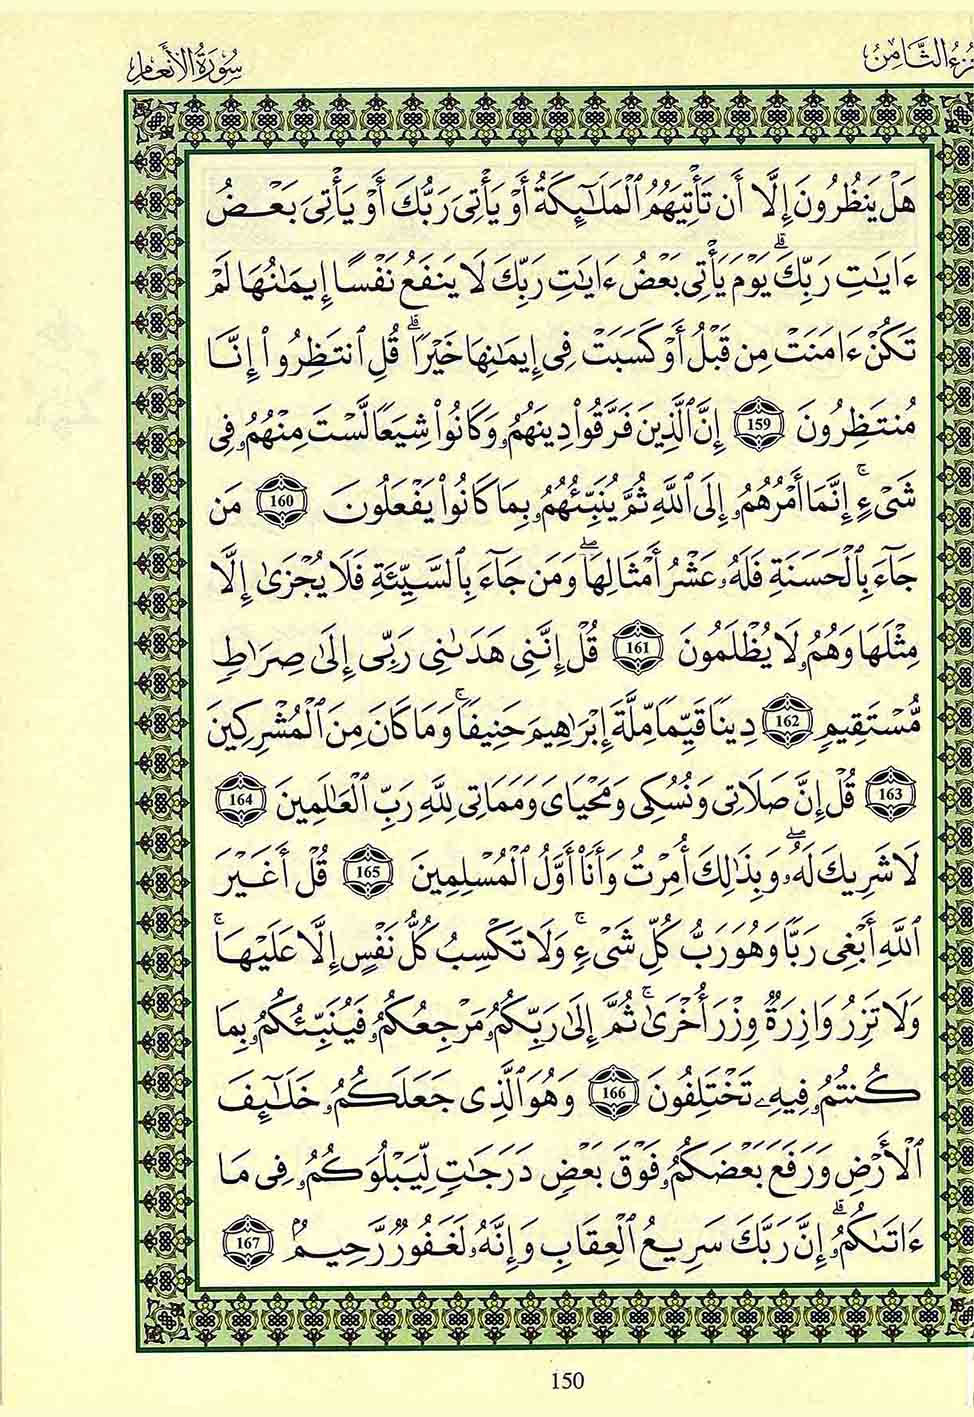 الجزء الثامن
سورة الأنعام
هَلْ يَنظُرُونَ إِلَّا أَن تَأْتِيَهُمُ ٱلْمَلَـٰٓئِكَةُ أَوْ يَأْتِىَ رَبُّكَ أَوْ يَأْتِىَ بَعْضُ
ءَايَـٰتِ رَبِّكَ ۗ يَوْمَ يَأْتِى بَعْضُ ءَايَـٰتِ رَبِّكَ لَا يَنفَعُ نَفْسًا إِيمَـٰنُهَا لَمْ
تَكُنْ ءَامَنَتْ مِن قَبْلُ أَوْ كَسَبَتْ فِىٓ إِيمَـٰنِهَا خَيْرًا ۗ قُلِ ٱنتَظِرُوٓا۟ إِنَّا
مُنتَظِرُونَ 159 إِنَّ ٱلَّذِينَ فَرَّقُوا۟ دِينَهُمُۥ وَكَانُوا۟ شِيَعًا لَّسْتَ مِنْهُمُۥ فِى
شَىْءٍ ۚ إِنَّمَآ أَمْرُهُمُۥٓ إِلَى ٱللَّهِ ثُمَّ يُنَبِّئُهُمُۥ بِمَا كَانُوا۟ يَفْعَلُونَ 160 مَن
جَآءَ بِٱلْحَسَنَةِ فَلَهُۥ عَشْرُ أَمْثَالِهَا ۖ وَمَن جَآءَ بِٱلسَّيِّئَةِ فَلَا يُجْزَىٰٓ إِلَّا
مِثْلَهَا وَهُمُۥ لَا يُظْلَمُونَ 161 قُلْ إِنَّنِى هَدَىٰنِى رَبِّىٓ إِلَىٰ صِرَٰطٍ
مُّسْتَقِيمٍ 162 دِينًا قَيِّمًا مِّلَّةَ إِبْرَٰهِيمَ حَنِيفًا ۚ وَمَا كَانَ مِنَ ٱلْمُشْرِكِينَ
163 قُلْ إِنَّ صَلَاتِى وَنُسُكِى وَمَحْيَاىَ وَمَمَاتِى لِلَّهِ رَبِّ ٱلْعَـٰلَمِينَ 164
لَا شَرِيكَ لَهُۥ ۖ وَبِذَٰلِكَ أُمِرْتُ وَأَنَا۠ أَوَّلُ ٱلْمُسْلِمِينَ 165 قُلْ أَغَيْرَ
ٱللَّهِ أَبْغِى رَبًّا وَهُوَ رَبُّ كُلِّ شَىْءٍ ۚ وَلَا تَكْسِبُ كُلُّ نَفْسٍ إِلَّا عَلَيْهَا ۚ
وَلَا تَزِرُ وَازِرَةٌ وِزْرَ أُخْرَىٰ ۚ ثُمَّ إِلَىٰ رَبِّكُمُۥ مَرْجِعُكُمُۥ فَيُنَبِّئُكُمُۥ بِمَا
كُنتُمُۥ فِيهِۦ تَخْتَلِفُونَ 166 وَهُوَ ٱلَّذِى جَعَلَكُمُۥ خَلَـٰٓئِفَ
ٱلْأَرْضِ وَرَفَعَ بَعْضَكُمُۥ فَوْقَ بَعْضٍ دَرَجَـٰتٍ لِّيَبْلُوَكُمُۥ فِى مَآ
ءَاتَىٰكُمُۥ ۗ إِنَّ رَبَّكَ سَرِيعُ ٱلْعِقَابِ وَإِنَّهُۥ لَغَفُورٌ رَّحِيمٌۢ 167
150